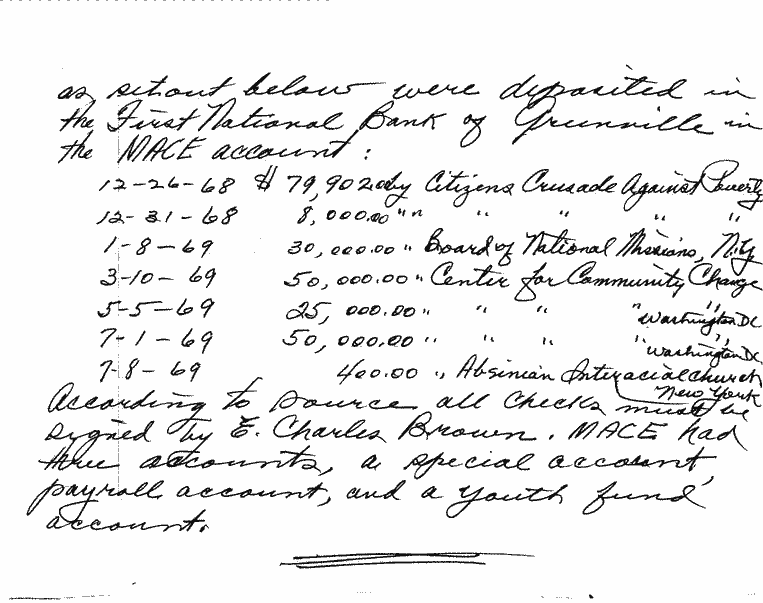 as setout below were deposited in
the First National Bank of Greenville in
the MACE account:
12-26-68 $ 79,902.00 by Citizens Crusade Against Poverty
12-31-68 8,000.00 " " " " " "
1-8-69 30,000.00 " Board of National Missions, N.Y.
3-10-69 50,000.00 " Center for Community Change
5-5-69 25,000.00 " " " " "
Washington DC
7-1-69 50,000.00 " " " " "
Washington DC
7-8-69 400.00 " Absinian Interacial Church
New York
According to source all checks must be
signed by E. Charles Brown. MACE had
three accounts, a special account,
payroll account, and a youth fund
account.